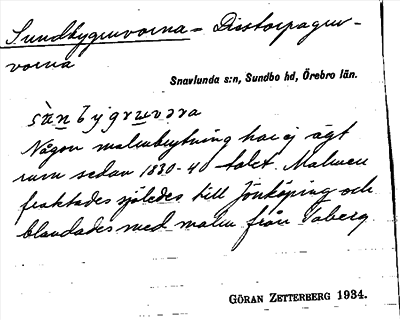 Sundbygruvorna = Distorpagru-
vorna
Snavlunda s:n, Sundbo hd, Örebro län.
sùnbygruvəra
Någon malmbrytning har ej ägt
rum sedan 1830-40 talet. Malmen
fraktades sjöledes till Jönköping och
blandades med malm från Taberg
GÖRAN ZETTERBERG 1934.